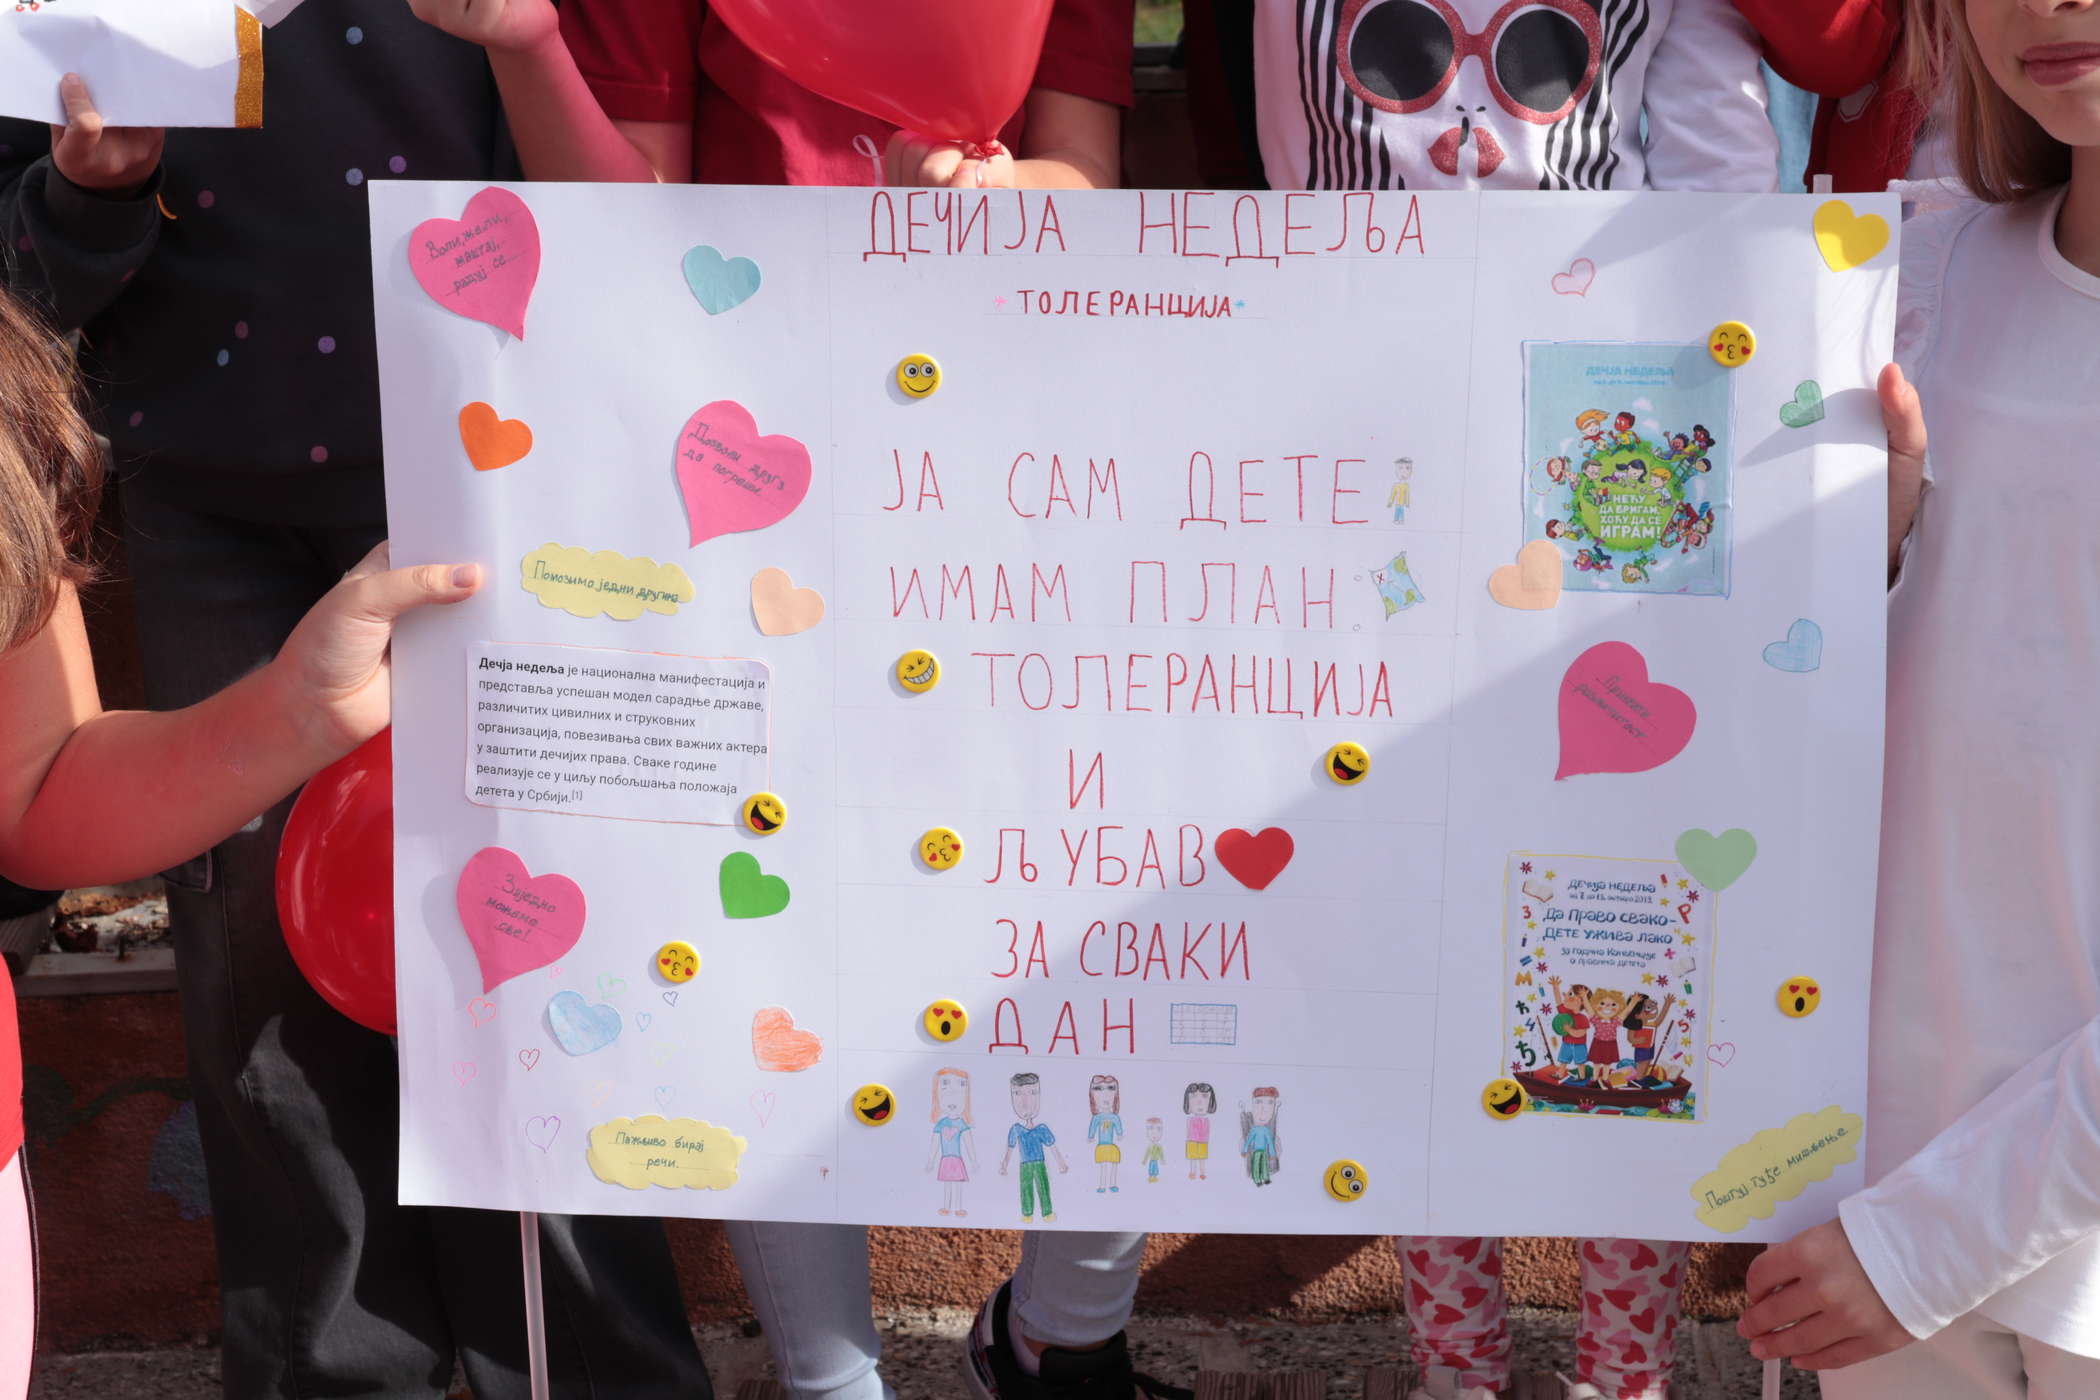 ДЕЧИЈА НЕДЕЉА
ТОЛЕРАНЦИЈА
Воли, жели,
маштај,
радуј се
Дозволи другу
да погреши.
Помозимо једни другима
Дечја недеља је национална манифестација и
представља успешан модел сарадње државе,
различитих цивилних и струковних
организација, повезивања свих важних актера
у заштити дечијих права. Сваке године
реализује се у циљу побољшања положаја
детета у Србији.[1]
Заједно
можемо
све!
Пажљиво бирај
речи.
ЈА САМ ДЕТЕ
ИМАМ ПЛАН
ТОЛЕРАНЦИЈА
И
ЉУБАВ
ЗА СВАКИ
ДАН
ДЕЧЈА НЕДЕЉА
НЕЋУ
ДА БРИГАМ,
ХОЋУ ДА СЕ
ИГРАМ!
Прихвати
различитост
ДЕЧЈА НЕДЕЉА
од 7. до 13. октобра 2013.
Да право свако-
ДЕТЕ УЖИВА ЛАКО
30 година Конвенције
о правима детета
Поштуј туђе мишљење